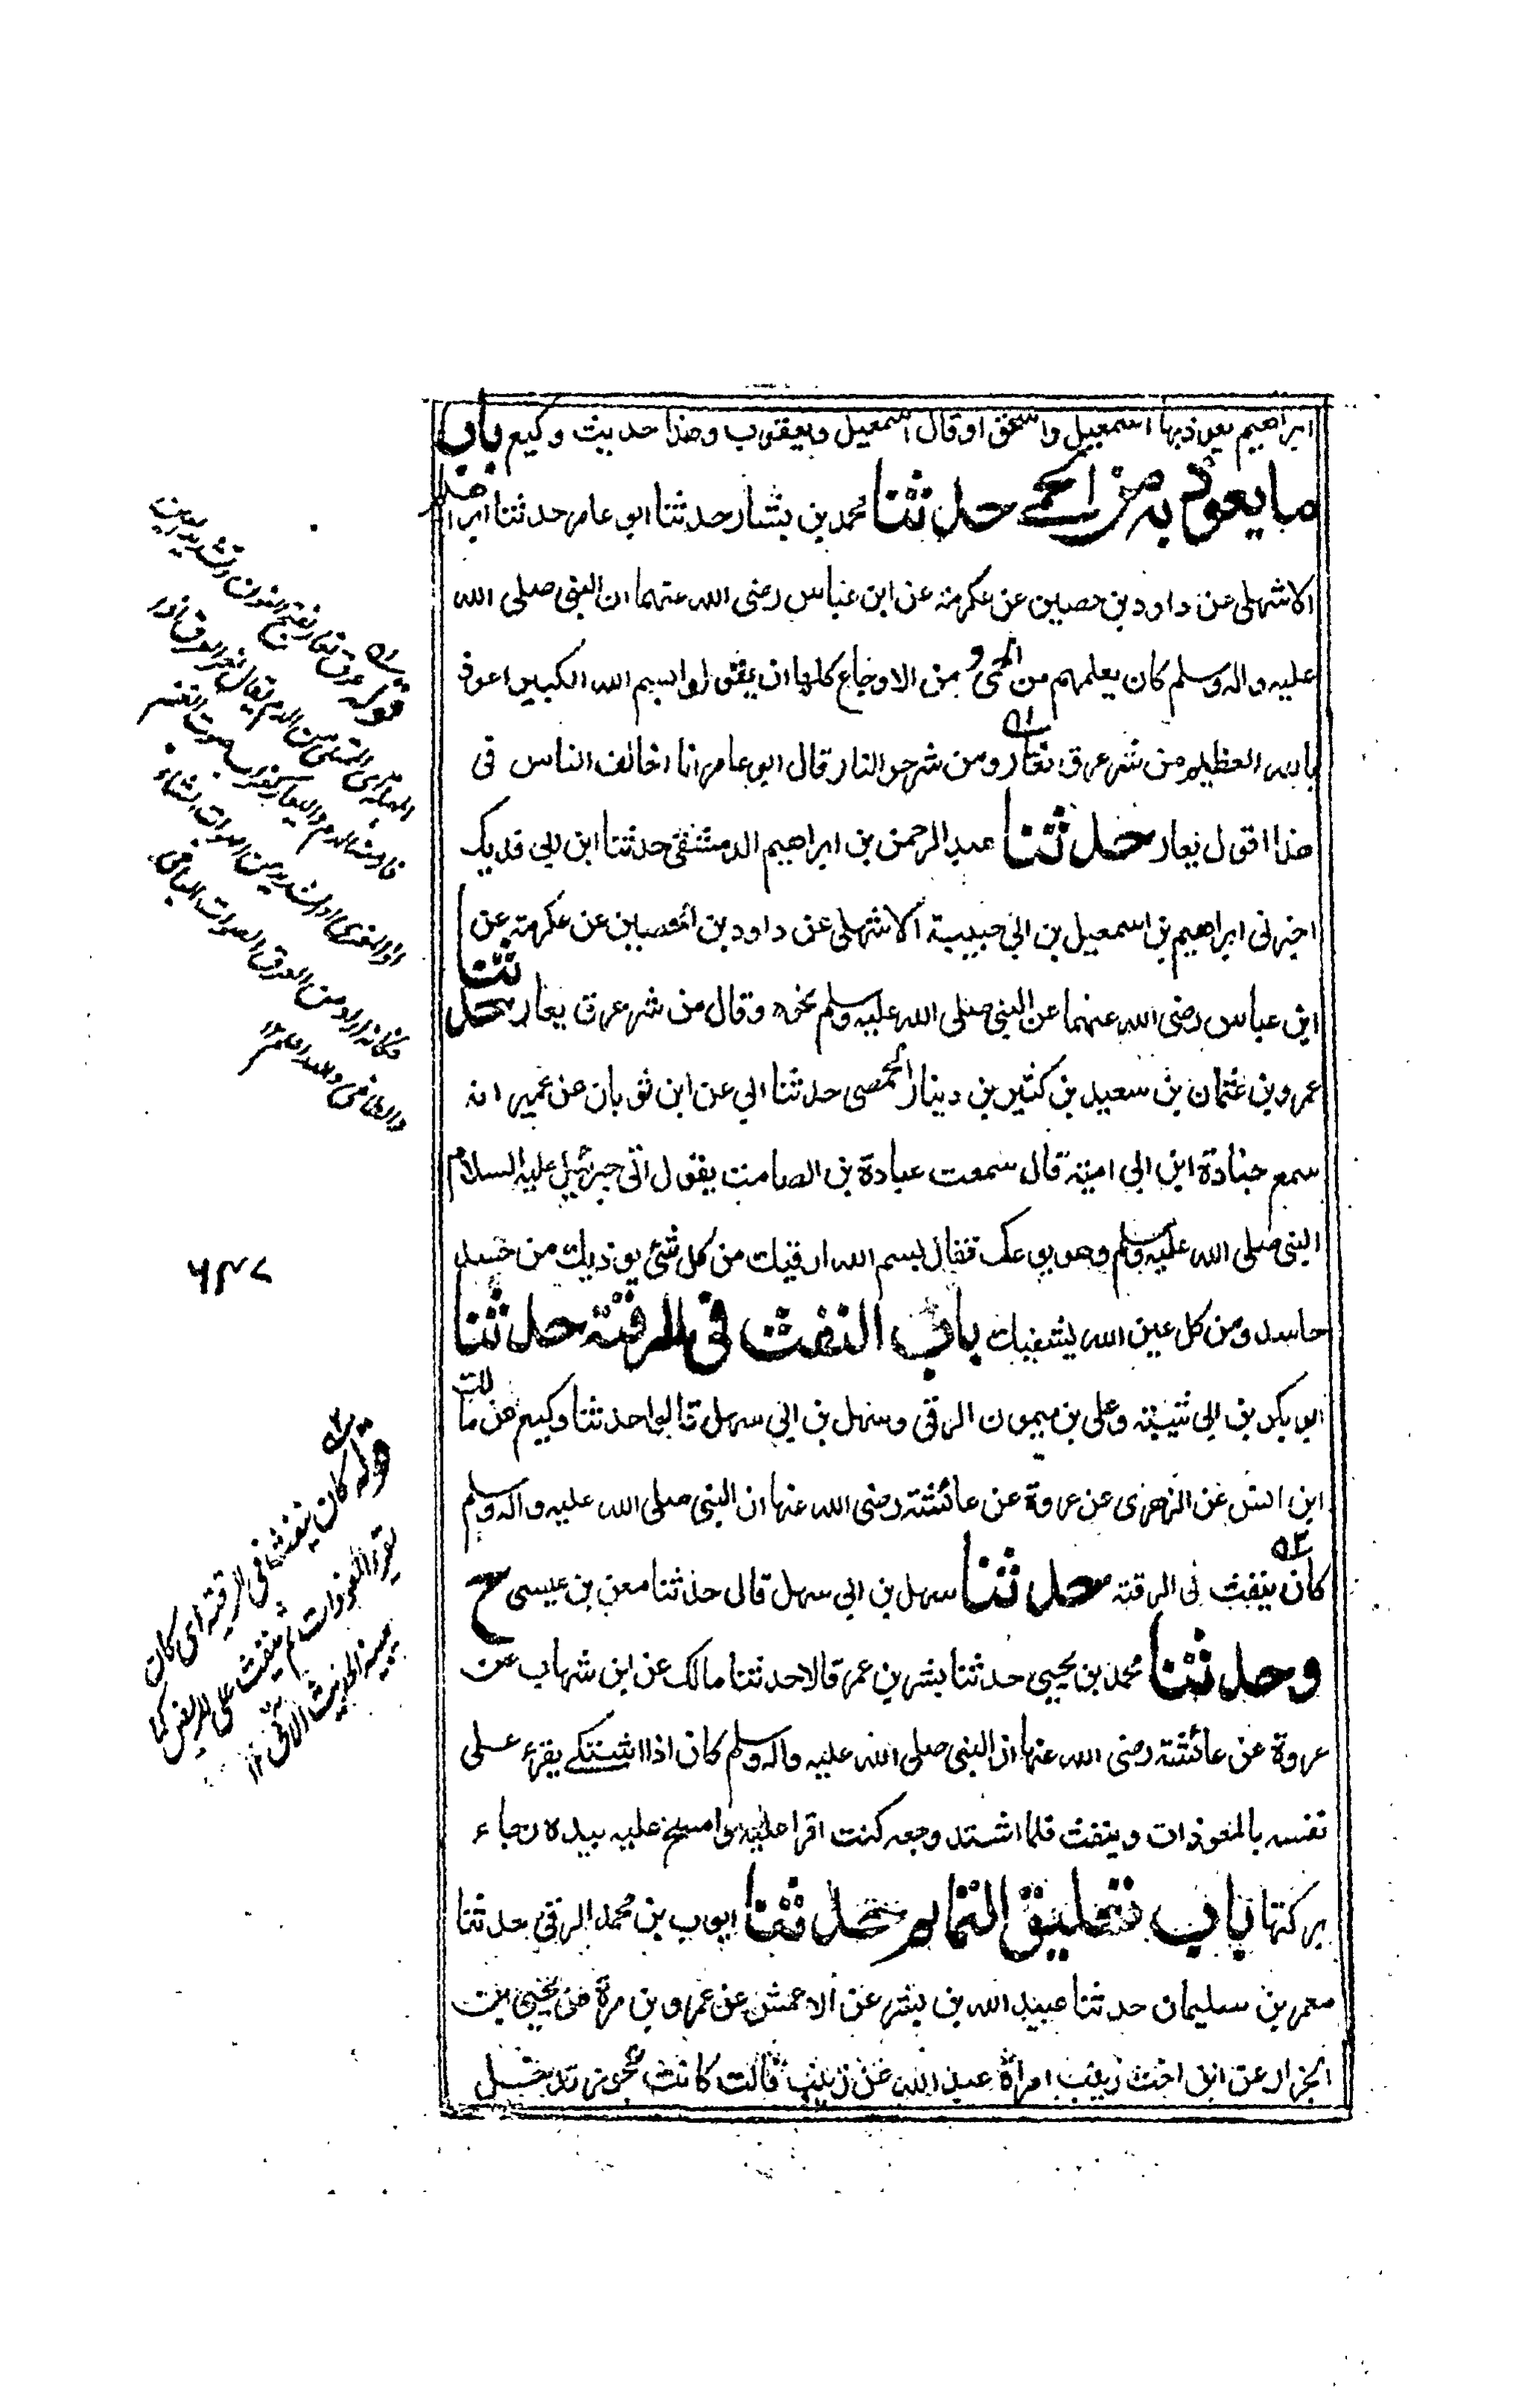 ابراهيم يعوذ بها اسمعيل واسحق او قال اسمعيل ويعقوب وهذا حديث وكيع باب
ما يعوذ به من الحمى حدثنا محمد بن بشار حدثنا ابو عامر حدثنا ابراهيم
الاشهلي عن داود بن حصين عن عكرمة عن ابن عباس رضى الله عنهما ان النبى صلى الله
عليه واله وسلم كان يعلمهم من الحمى و من الاوجاع كلها ان يقولوا بسم الله الكبير اعوذ
بالله العظيم من شر عرق نعار ومن شر حر النار قال ابو عامر انا اخالف الناس فى
هذا اقول يعار حدثنا عبد الرحمن بن ابراهيم الدمشقى حدثنا ابن ابى فديك
اخبرنى ابراهيم بن اسمعيل بن ابى حبيبة الاشهلى عن داود بن الحصين عن عكرمة عن
ابن عباس رضى الله عنهما عن النبى صلى الله عليه وسلم نحوه وقال من شر عرق يعار حدثنا
عمرو بن عثمان بن سعيد بن كثير بن دينار الحمصى حدثنا ابى عن ابن ثوبان عن عمير انه
سمع جنادة ابن ابى امية قال سمعت عبادة بن الصامت يقول اتى جبرئيل عليه السلام
النبى صلى الله عليه وسلم وهو يوعك فقال بسم الله ارقيك من كل شئ يوذيك من حسد
حاسد ومن كل عين الله يشفيك باب النفث فى الرقية حدثنا
ابو بكر بن ابى شيبة وعلى بن ميمون الرقى وسهل بن ابى سهل قالوا حدثنا وكيع عن مالك
ابن انس عن الزهرى عن عروة عن عائشة رضى الله عنها ان النبى صلى الله عليه واله وسلم
كان ينفث فى الرقية حدثنا سهل بن ابى سهل قال حدثنا معن بن عيسى ح
وحدثنا محمد بن يحيى حدثنا بشر بن عمر قالا حدثنا مالك عن ابن شهاب عن
عروة عن عائشة رضى الله عنها ان النبى صلى الله عليه واله وسلم كان اذا اشتكى يقرء على
نفسه بالمعوذات وينفث فلما اشتد وجعه كنت اقرا عليه وامسح عليه بيده رجاء
بركتها باب تعليق التمائم حدثنا ايوب بن محمد الرقى حدثنا
معمر بن سليمان حدثنا عبيد الله بن بشر عن الاعمش عن عمرو بن مرة عن يحيى بن
الجزار عن ابن اخت زينب امراة عبد الله عن زينب قالت كانت عجوز تدخل
قوله عرق نعار بفتح النون وتشديد عين
المهملة اى الممتلى من الدم يقال نعر العرق اذا
فار منه الدم
٦٣٧
قوله كان ينفث فى الرقية اى كان
يقرء المعوذات ثم ينفث على المريض كما
يبينه الحديث الاتى ١٢